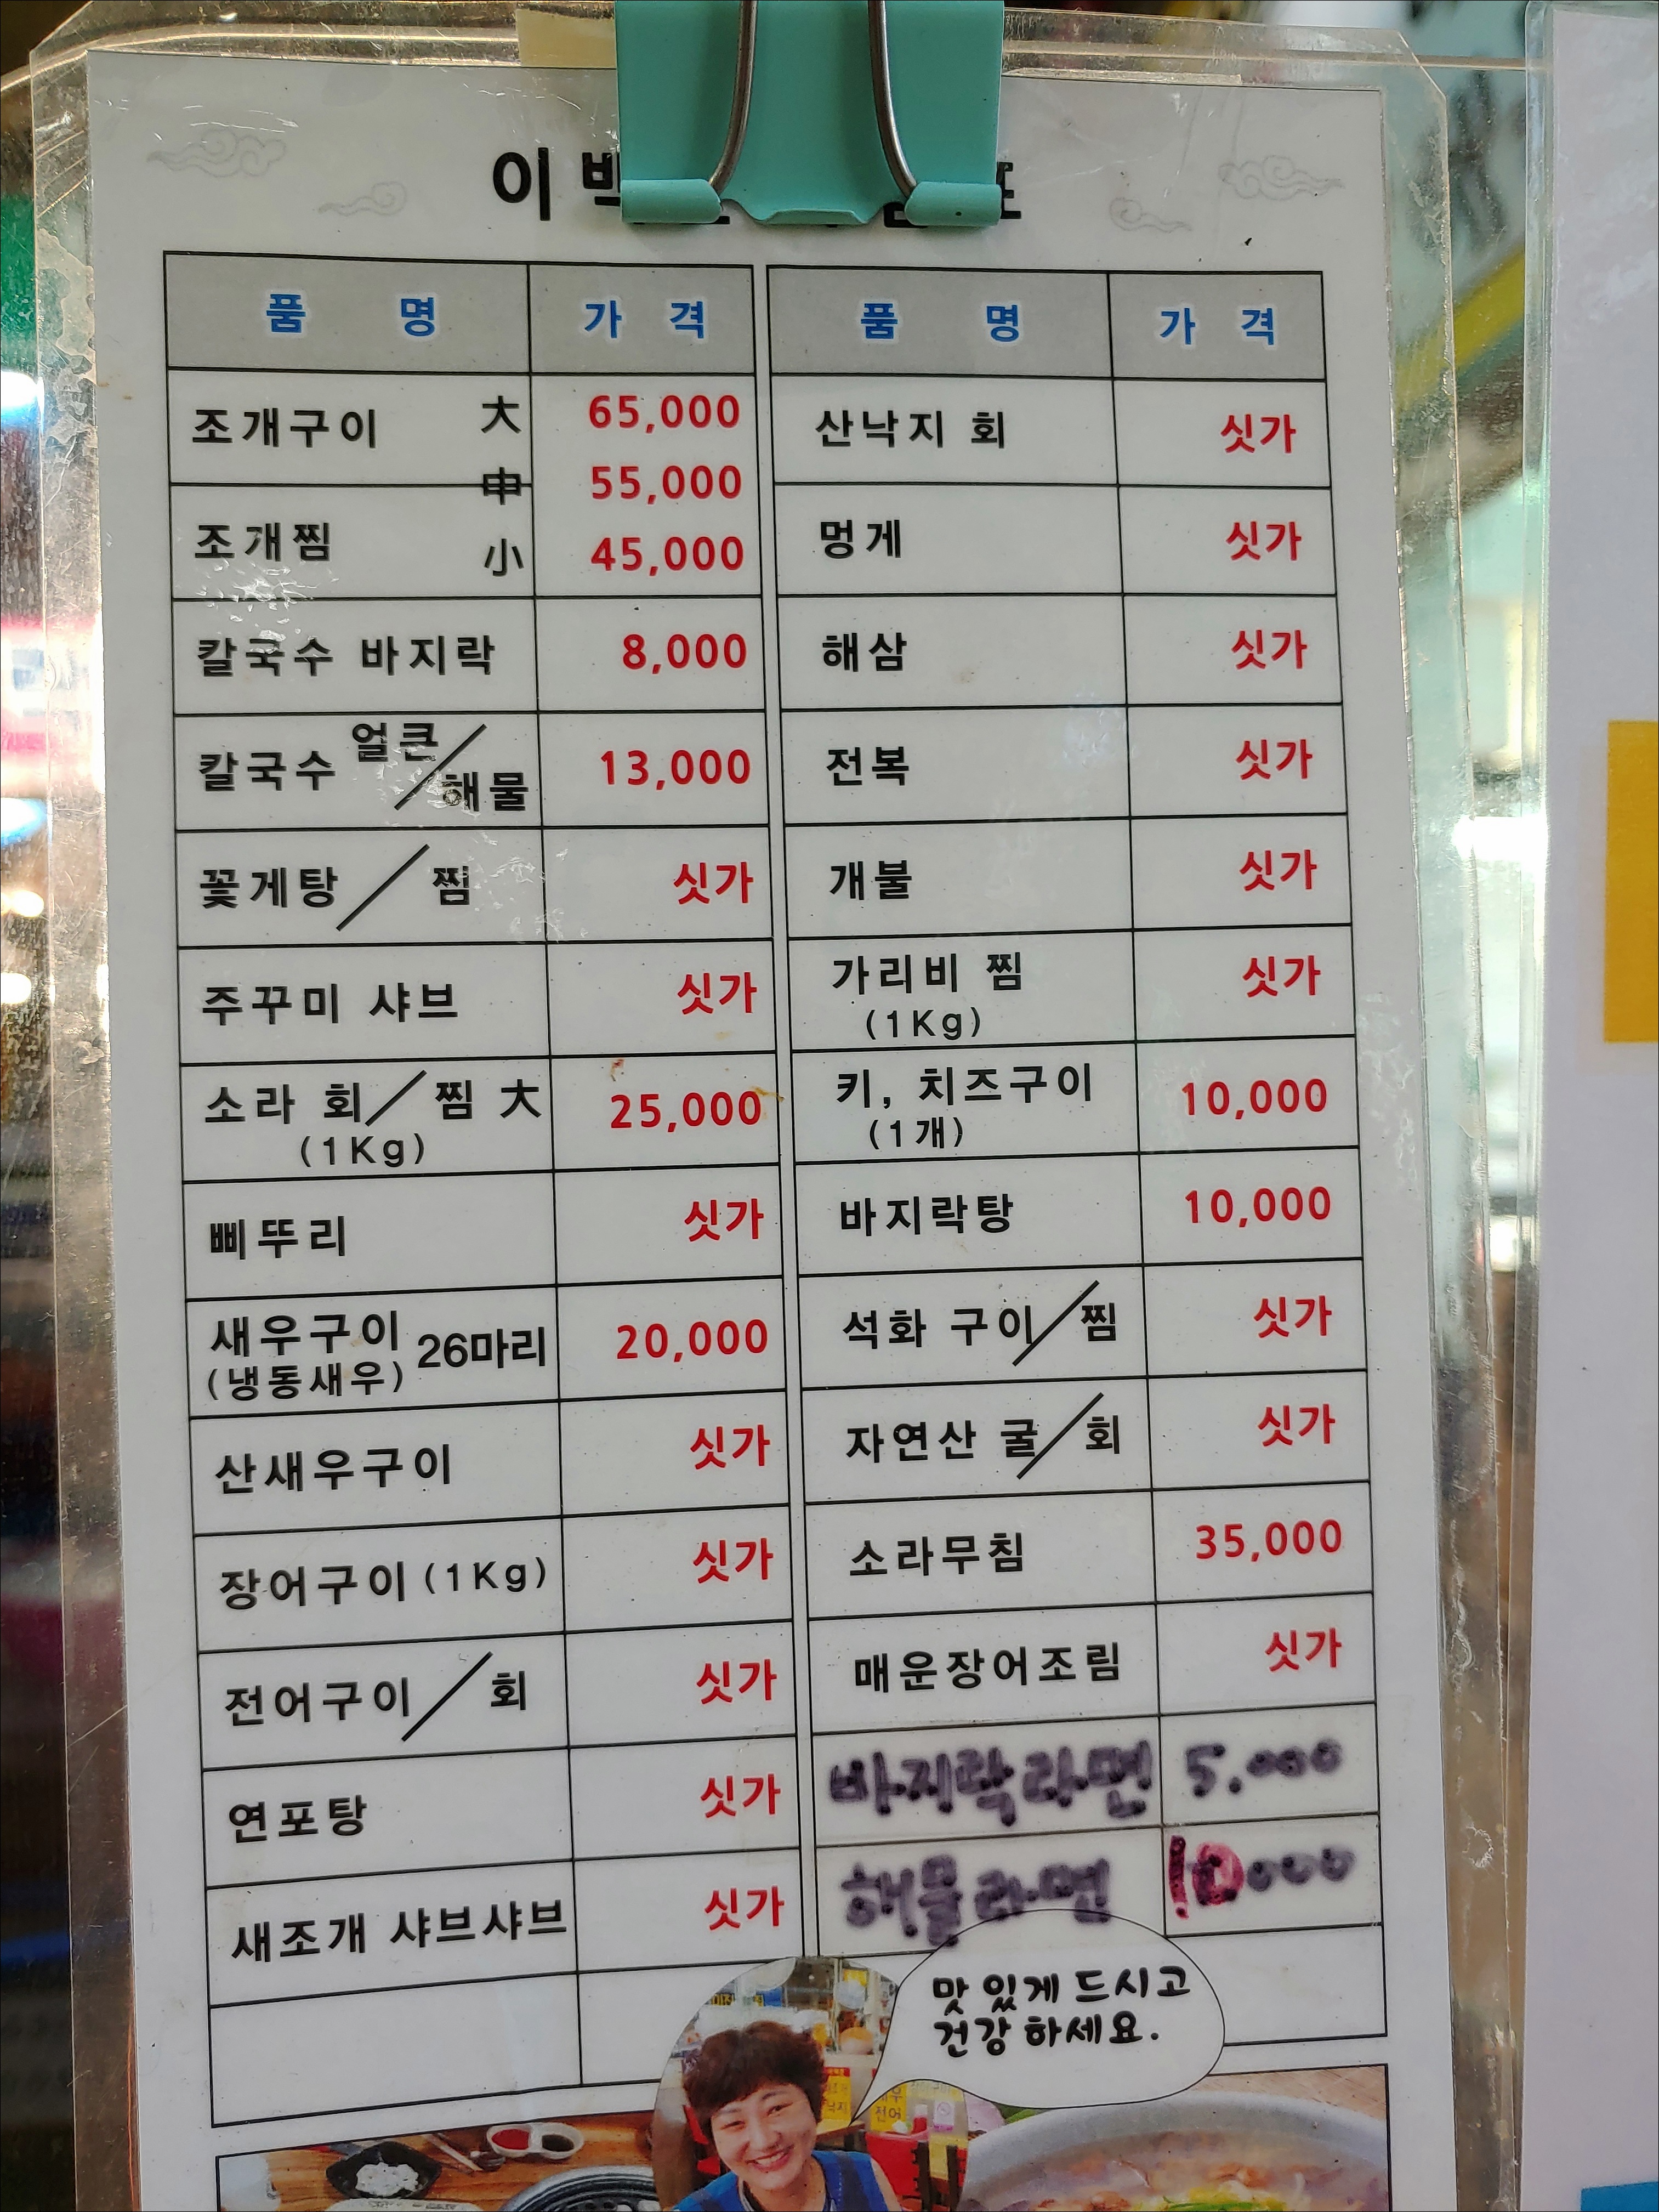 이
품 명 가 격
조개구이 大 65,000
申 55,000
조개찜 小 45,000
칼국수 바지락 8,000
칼국수 얼큰/해물 13,000
꽃게탕/찜 싯가
주꾸미 샤브 싯가
소라 회/찜 大 25,000
(1Kg)
삐뚜리 싯가
새우구이 26마리 20,000
(냉동새우)
산새우구이 싯가
장어구이(1Kg) 싯가
전어구이/회 싯가
연포탕 싯가
새조개 샤브샤브 싯가
품 명 가 격
산낙지 회 싯가
멍게 싯가
해삼 싯가
전복 싯가
개불 싯가
가리비 찜 싯가
(1Kg)
키, 치즈구이 10,000
(1개)
바지락탕 10,000
석화 구이/찜 싯가
자연산 굴/회 싯가
소라무침 35,000
매운장어조림 싯가
바지락라면 5.000
해물라면 10000
맛 있게 드시고
건강 하세요.